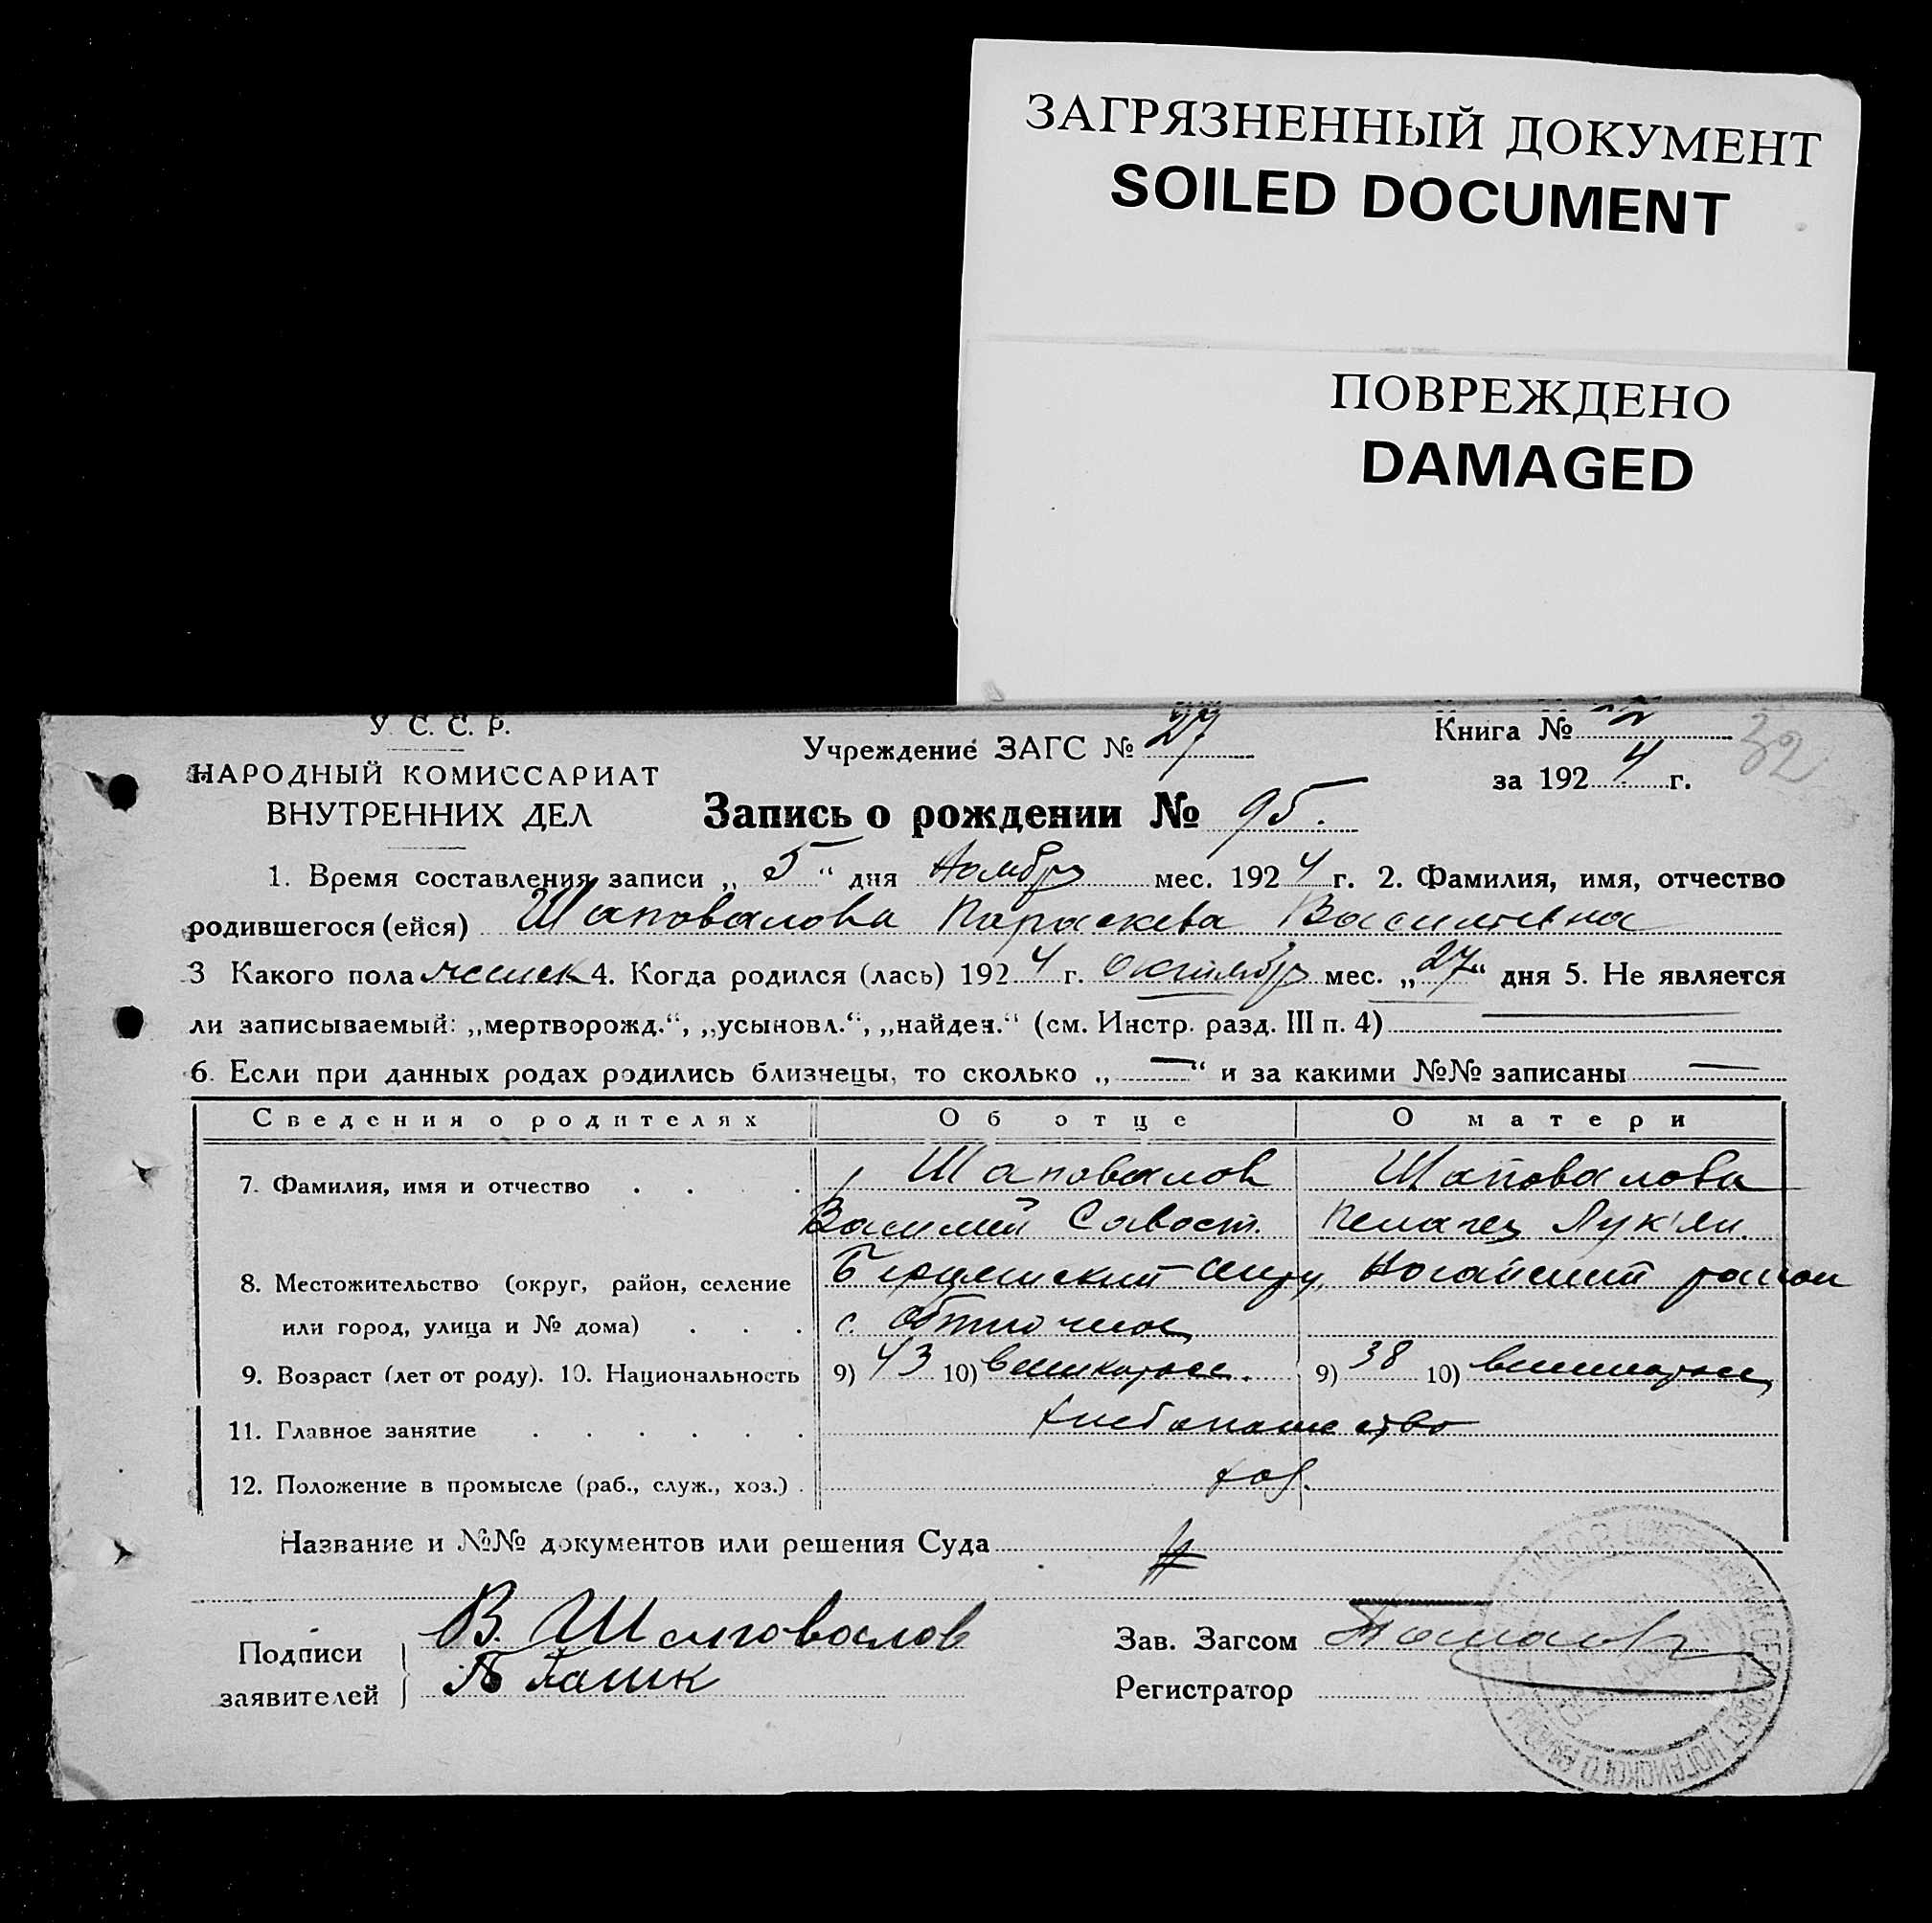 ЗАГРЯЗНЕННЫЙ ДОКУМЕНТ
SOILED DOCUMENT
ПОВРЕЖДЕНО
DAMAGED
У. С. С. Р.
НАРОДНЫЙ КОМИССАРИАТ
ВНУТРЕННИХ ДЕЛ
Учреждение ЗАГС № 27
Книга №
за 1924 г.
32
Запись о рождении № 95.
1. Время составления записи „5“ дня Ноября мес. 1924 г. 2. Фамилия, имя, отчество
родившегося (ейся) Шаповалова Параскева Васильевна
3 Какого пола женск 4. Когда родился (лась) 1924 г. октября мес. „27“ дня 5. Не является
ли записываемый: „мертворожд.“, „усыновл.“, „найден.“ (см. Инстр. разд. III п. 4)
6. Если при данных родах родились близнецы, то сколько „—“ и за какими №№ записаны —
Сведения о родителях Об отце О матери
7. Фамилия, имя и отчество . . . . Шаповалов Шаповалова
Василий Савост. Пелагея Лукъян.
8. Местожительство (округ, район, селение Бердянский округ, Ногайский район
или город, улица и № дома) . . . с.
9. Возраст (лет от роду). 10. Национальность 9) 43 10) великоросс. 9) 38 10) великоросс
11. Главное занятие . . . . . . хлебопашество
12. Положение в промысле (раб., служ., хоз.) . хоз.
Название и №№ документов или решения Суда
Подписи
заявителей
В. Шаповалов
Зав. Загсом
Регистратор